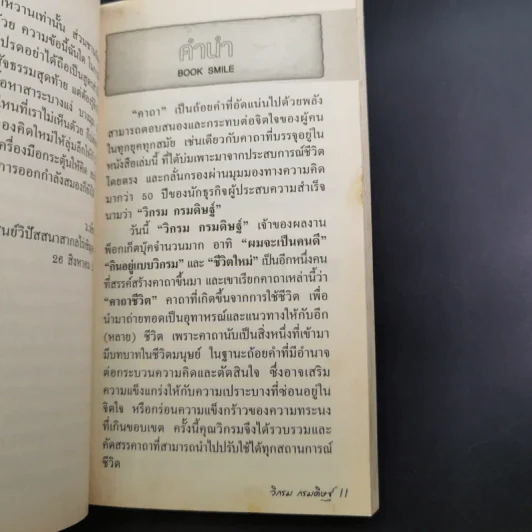 หวานเท่านั้น ส่วน
ด้วย ความข้อนี้ฉันใด
โปรดอย่าได้ถือเป็น
ธรรมสุดท้าย แต่
หาสาระบางแง่
ไหนที่เราไม่เห็นด้วย
องคิดใหม่ให้ลุ่มลึก
ครื่องมือกระตุ้นให้คิด
การออกกำลังสมอง
นย์วิปัสสนาสากล
26 สิงหาคม
คำนำ
BOOK SMILE
“คาถา” เป็นถ้อยคำที่อัดแน่นไปด้วยพลัง
สามารถตอบสนองและกระทบต่อจิตใจของผู้คน
ในทุกยุคทุกสมัย เช่นเดียวกับคาถาที่บรรจุอยู่ใน
หนังสือเล่มนี้ ที่ได้บ่มเพาะมาจากประสบการณ์ชีวิต
โดยตรง และกลั่นกรองผ่านมุมมองทางความคิด
มากว่า 50 ปีของนักธุรกิจผู้ประสบความสำเร็จ
นามว่า “วิกรม กรมดิษฐ์”
วันนี้ “วิกรม กรมดิษฐ์” เจ้าของผลงาน
พ็อกเก็ตบุ๊คจำนวนมาก อาทิ “ผมจะเป็นคนดี”
“กินอยู่แบบวิกรม” และ “ชีวิตใหม่” เป็นอีกหนึ่งคน
ที่สรรค์สร้างคาถาขึ้นมา และเขาเรียกคาถาเหล่านี้ว่า
“คาถาชีวิต” คาถาที่เกิดขึ้นจากการใช้ชีวิต เพื่อ
นำมาถ่ายทอดเป็นอุทาหรณ์และแนวทางให้กับอีก
(หลาย) ชีวิต เพราะคาถานับเป็นสิ่งหนึ่งที่เข้ามา
มีบทบาทในชีวิตมนุษย์ ในฐานะถ้อยคำที่มีอำนาจ
ต่อกระบวนความคิดและตัดสินใจ ซึ่งอาจเสริม
ความแข็งแกร่งให้กับความเปราะบางที่ซ่อนอยู่ใน
จิตใจ หรือกร่อนความแข็งกร้าวของความทระนง
ที่เกินขอบเขต ครั้งนี้คุณวิกรมจึงได้รวบรวมและ
คัดสรรคาถาที่สามารถนำไปปรับใช้ได้ทุกสถานการณ์
ชีวิต
วิกรม กรมดิษฐ์ 11